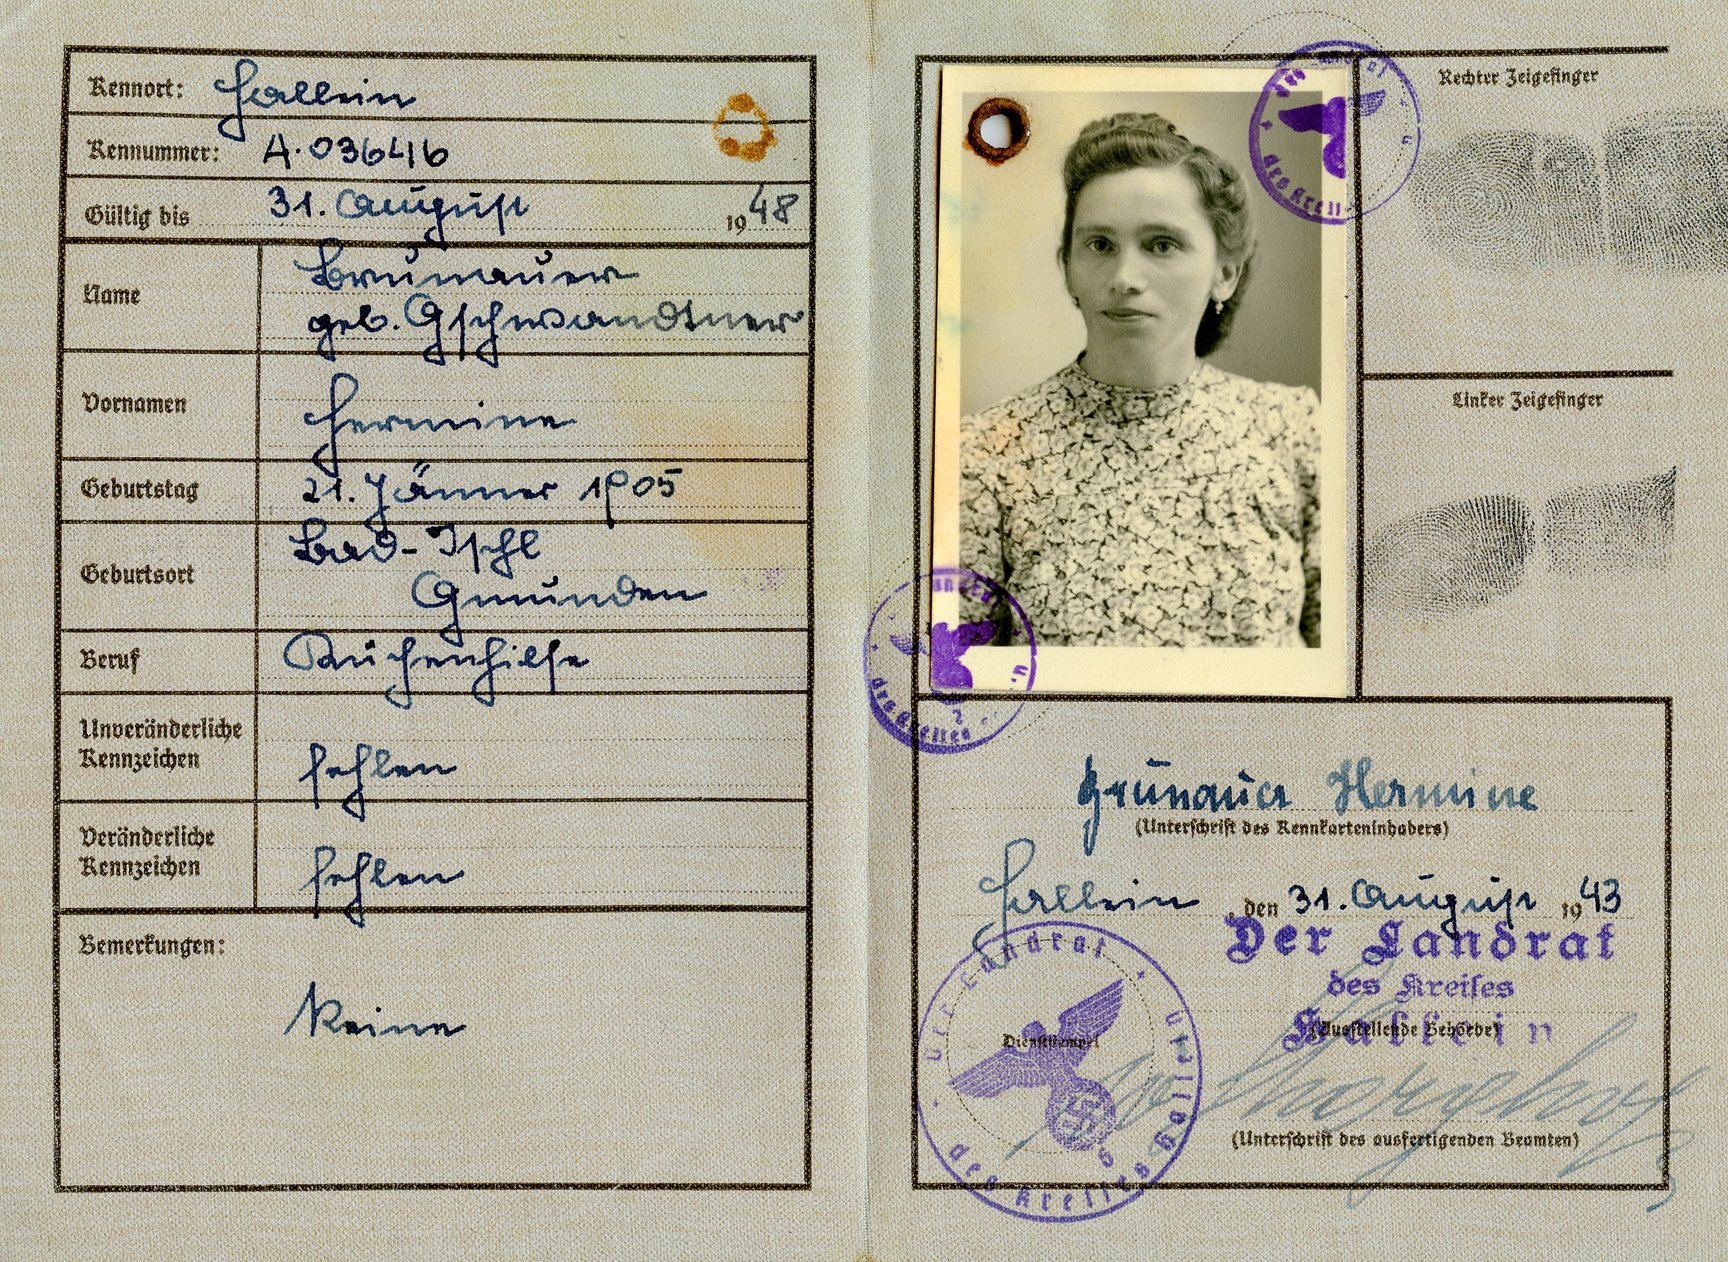 Kennort: Hallein
Kennummer: A·036416
Gültig bis 31. August 1948
Name
Brunauer
geb. Gschwandtner
Vornamen
Hermine
Geburtstag 21. Jänner 1905
Geburtsort
Bad-Ischl
Gmunden
Beruf Küchenhilfe
Unveränderliche
Kennzeichen
fehlen
Veränderliche
Kennzeichen
fehlen
Bemerkungen:
Keine
Rechter Zeigefinger
Linker Zeigefinger
Der Landrat
des Kreises
Landrat
des Kreises
Hermine
(Unterschrift des Kennkarteninhabers)
Hallein, den 31. August 1943
Der Landrat
des Kreises
Hallein
(Ausstellende Behörde)
Dienststempel
Der Landrat
des Kreises Hallein
(Unterschrift des ausfertigenden Beamten)